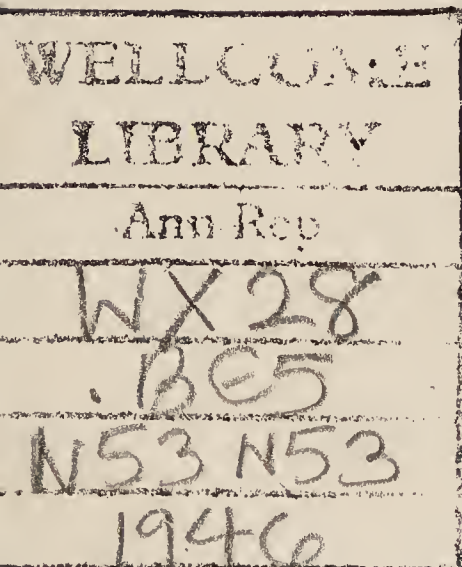 WELLCOME
LIBRARY
Ann Rep
WX28
.BE5
N53 N53
1946